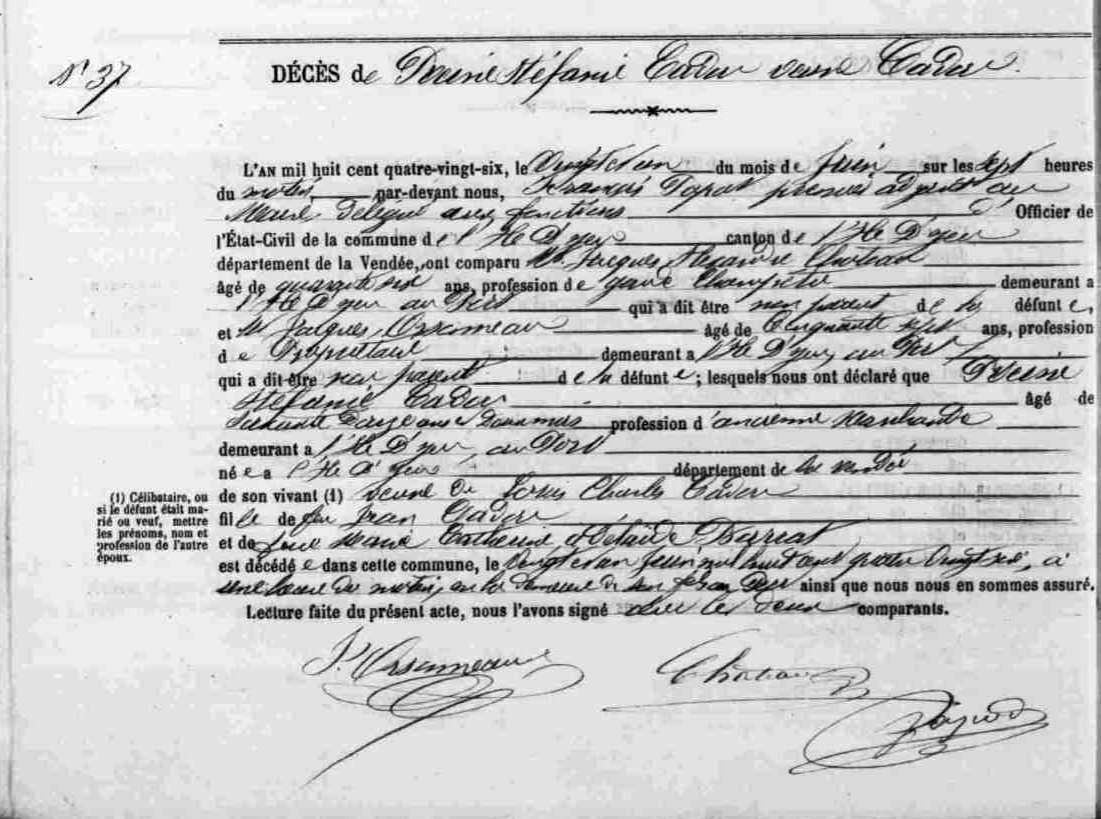 N° 37
DÉCÈS de Stéfanie Cadou veuve Cadou.
L'AN mil huit cent quatre-vingt-six, le vingt et un du mois de Juin sur les sept heures
du matin, par-devant nous, Francis premier adjoint au
Maire délégué aux fonctions d' Officier de
l'État-Civil de la commune de l'Ile D'yeu canton de l'Ile D'yeu
département de la Vendée, ont comparu M. Jacques Alexandre
âgé de quarante six ans, profession de garde Champêtre demeurant a
l'Ile d'yeu au Port qui a dit être non parent de la défunte,
et M Jacques Orsonneau âgé de Cinquante sept ans, profession
de Propriétaire demeurant a l'Ile D'yeu au Port
qui a dit être non parent de la défunte ; lesquels nous ont déclaré que
Stéfanie Cadou âgé de
soixante Douze ans profession d'ancienne Marchande
demeurant a l'Ile D'yeu au Port
née a l'Ile d'yeu département de la Vendée
de son vivant (1) veuve de Louis Charles Cadou
fille de feu Jean Cadou
et de feue Marie Catherine Adélaïde
est décédée dans cette commune, le vingt et un Juin mil huit cent quatre vingt six, à
une heure du matin, en la demeure de au Port ainsi que nous nous en sommes assuré.
Lecture faite du présent acte, nous l'avons signé avec les deux comparants.
(1) Célibataire, ou
si le défunt était ma-
rié ou veuf, mettre
les prénoms, nom et
profession de l'autre
époux.
J. Orsonneau